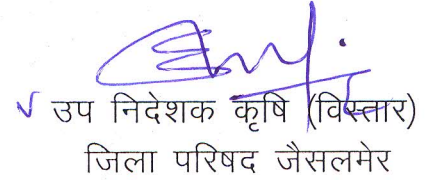 उप निदेशक कृषि (विस्तार)
जिला परिषद जैसलमेर